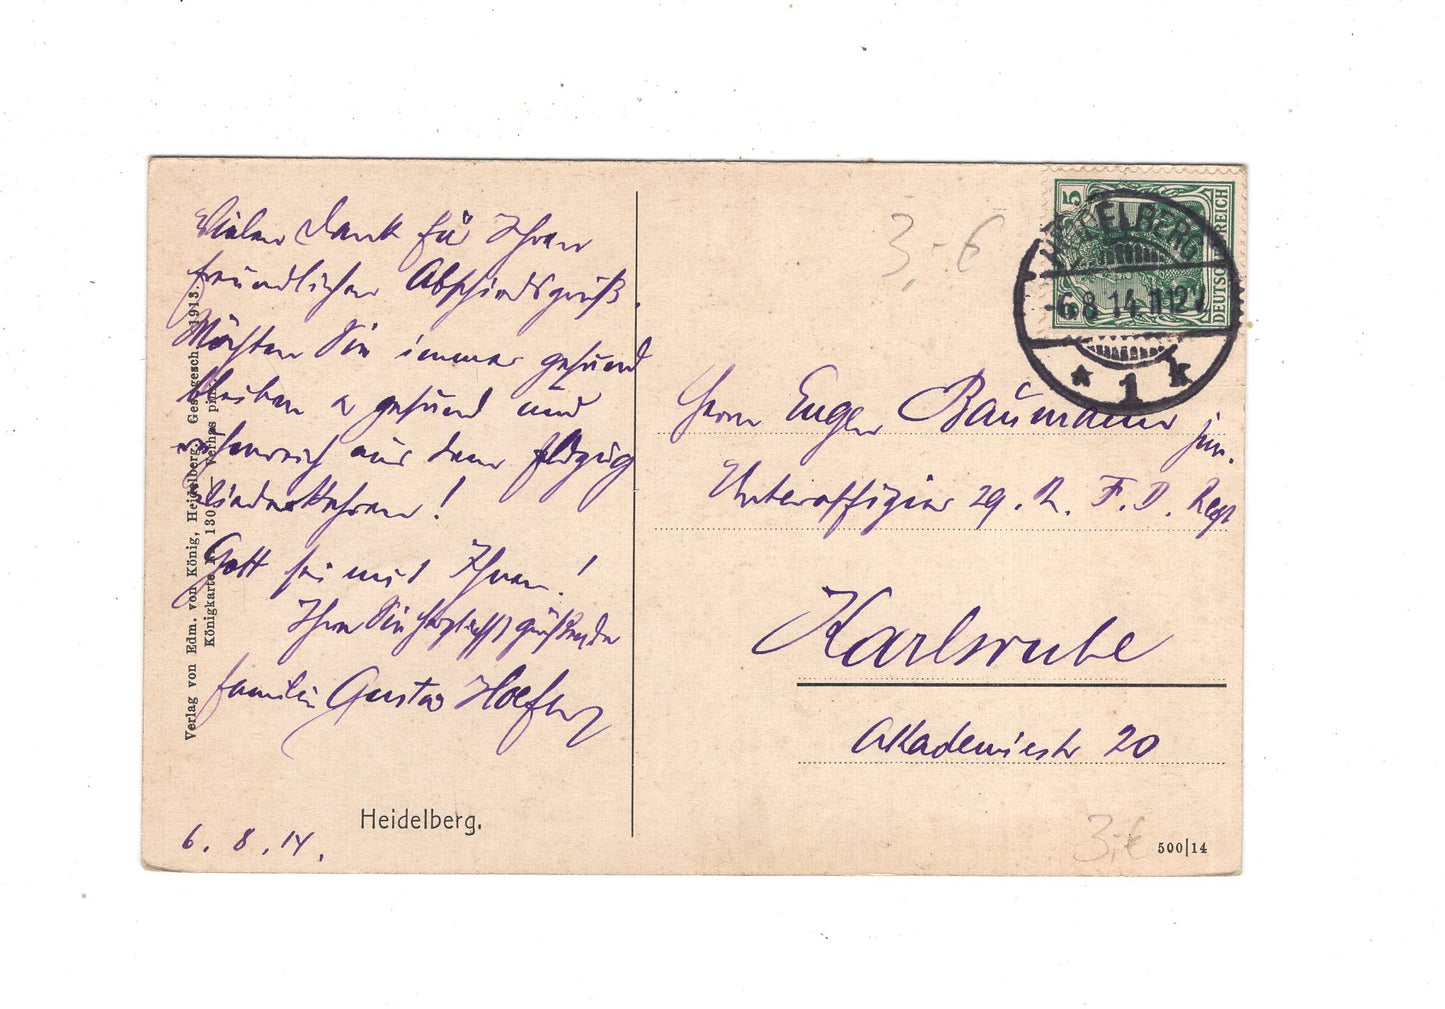 Vielen Dank für Ihren
freundlichen Abschiedsgruß.
Möchten Sie immer gesund
bleiben u gesund und
siegreich aus dem Feldzug
wiederkehren!
Gott sei mit Ihnen!
Ihre Sie herzlichst grüßende
Familie Gustav
6. 8. 14.
Heidelberg.
Verlag von Edm. von König, Heidelberg. Ges. gesch. 1913.
Königkarte
3,- €
5
DEUTSCHES REICH
HEIDELBERG
-6.8.14.11-12V
* 1 k
Herrn Eugen Baumann jun.
Unteroffizier 29. R. F. D. Regt
Karlsruhe
Akademiestr 20
3,- €
500|14